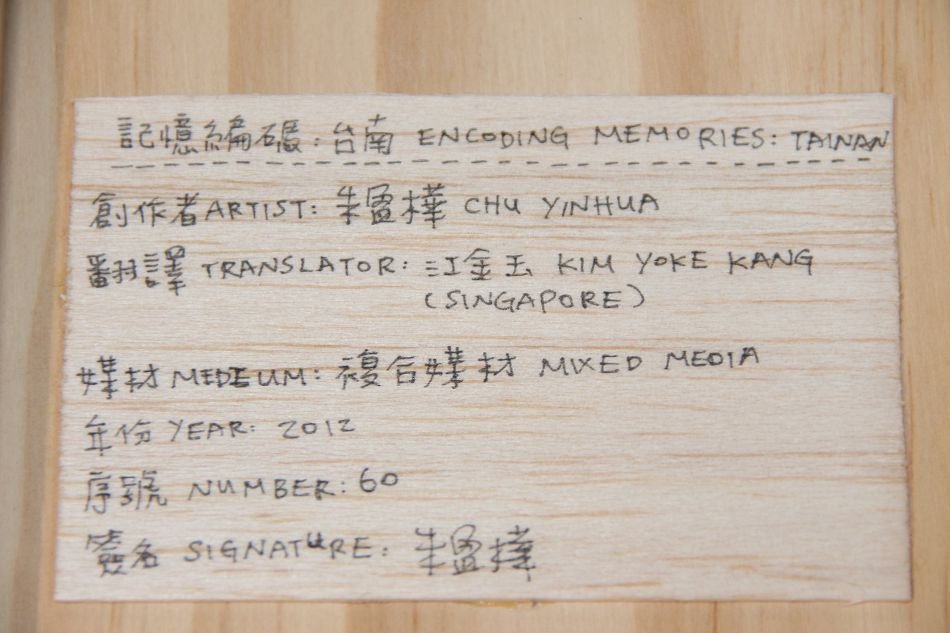 記憶編碼:台南 ENCODING MEMORIES: TAINAN
創作者 ARTIST: 朱盈樺 CHU YINHUA
翻譯 TRANSLATOR: 江金玉 KIM YOKE KANG
(SINGAPORE)
媒材 MEDIUM: 複合媒材 MIXED MEDIA
年份 YEAR: 2012
序號 NUMBER: 60
簽名 SIGNATURE: 朱盈樺